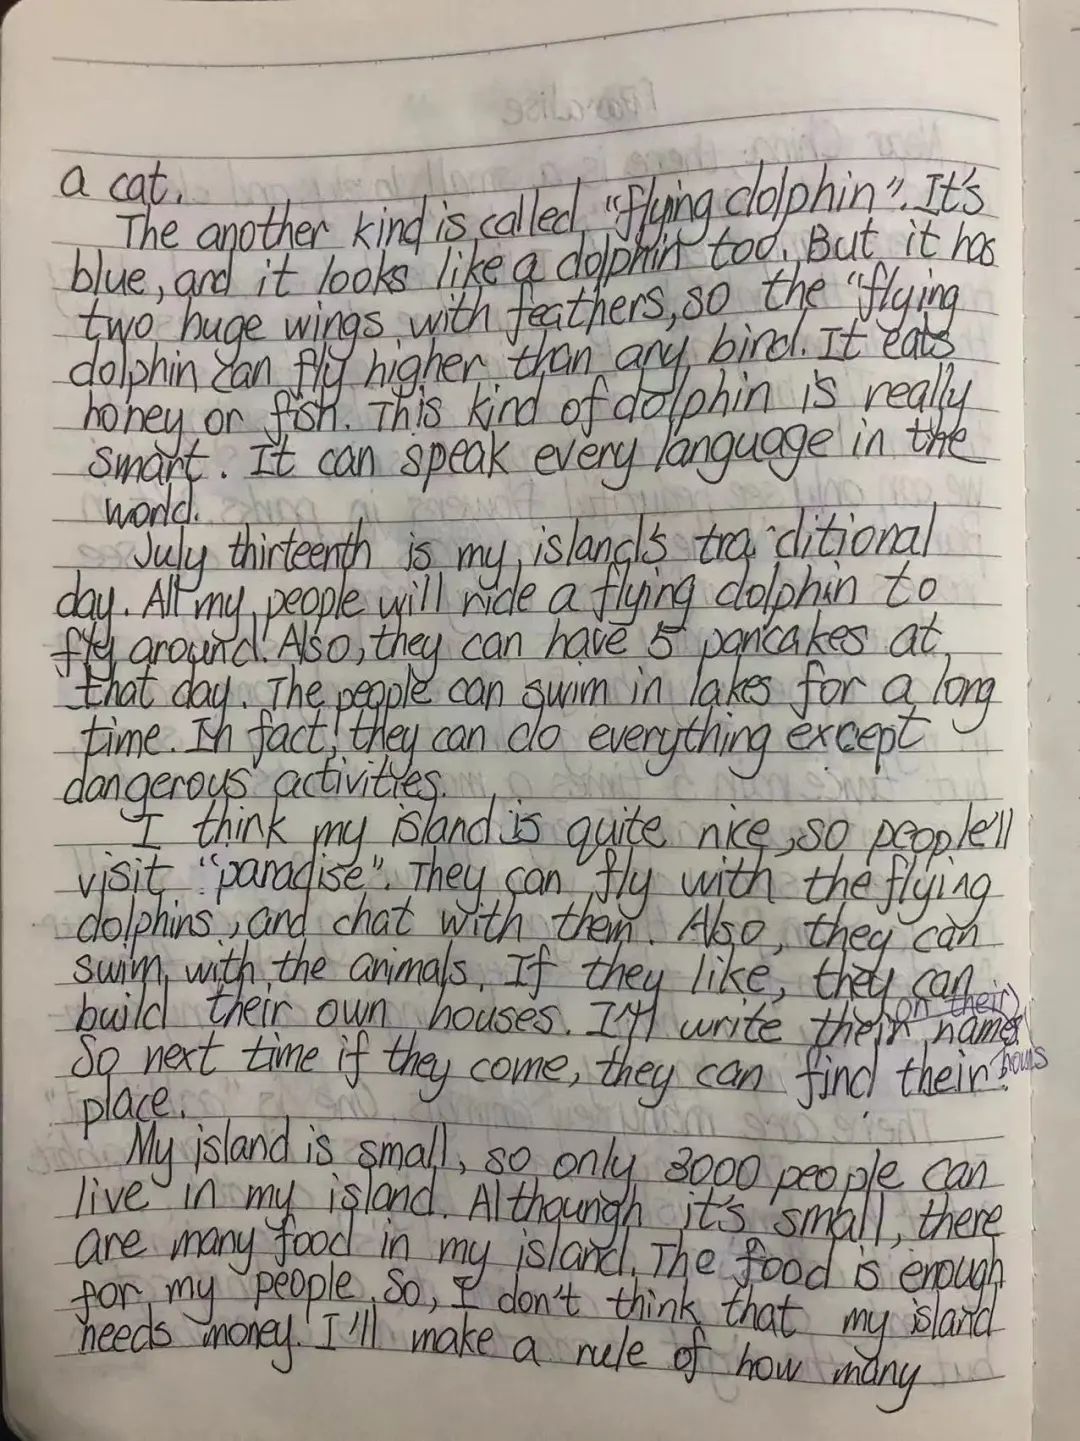 a cat.
The another kind is called "flying dolphin". It's
blue, and it looks like a dolphin too. But it has
two huge wings with feathers, so the "flying
dolphin can fly higher than any bird. It eats
honey or fish. This kind of dolphin is really
smart. It can speak every language in the
world.
July thirteenth is my island's traditional
day. All my people will ride a flying dolphin to
fly around. Also, they can have 5 pancakes at
that day. The people can swim in lakes for a long
time. In fact, they can do everything except
dangerous activities.
I think my island is quite nice, so people'll
visit "paradise". They can fly with the flying
dolphins, and chat with them. Also, they can
swim with the animals. If they like, they can
build their own houses. I'll write their names
on their
hous
So next time if they come, they can find their
place.
My island is small, so only 3000 people can
live in my island. Althoungh it's small, there
are many food in my island. The food is enough
for my people. So, I don't think that my island
needs money. I'll make a rule of how many